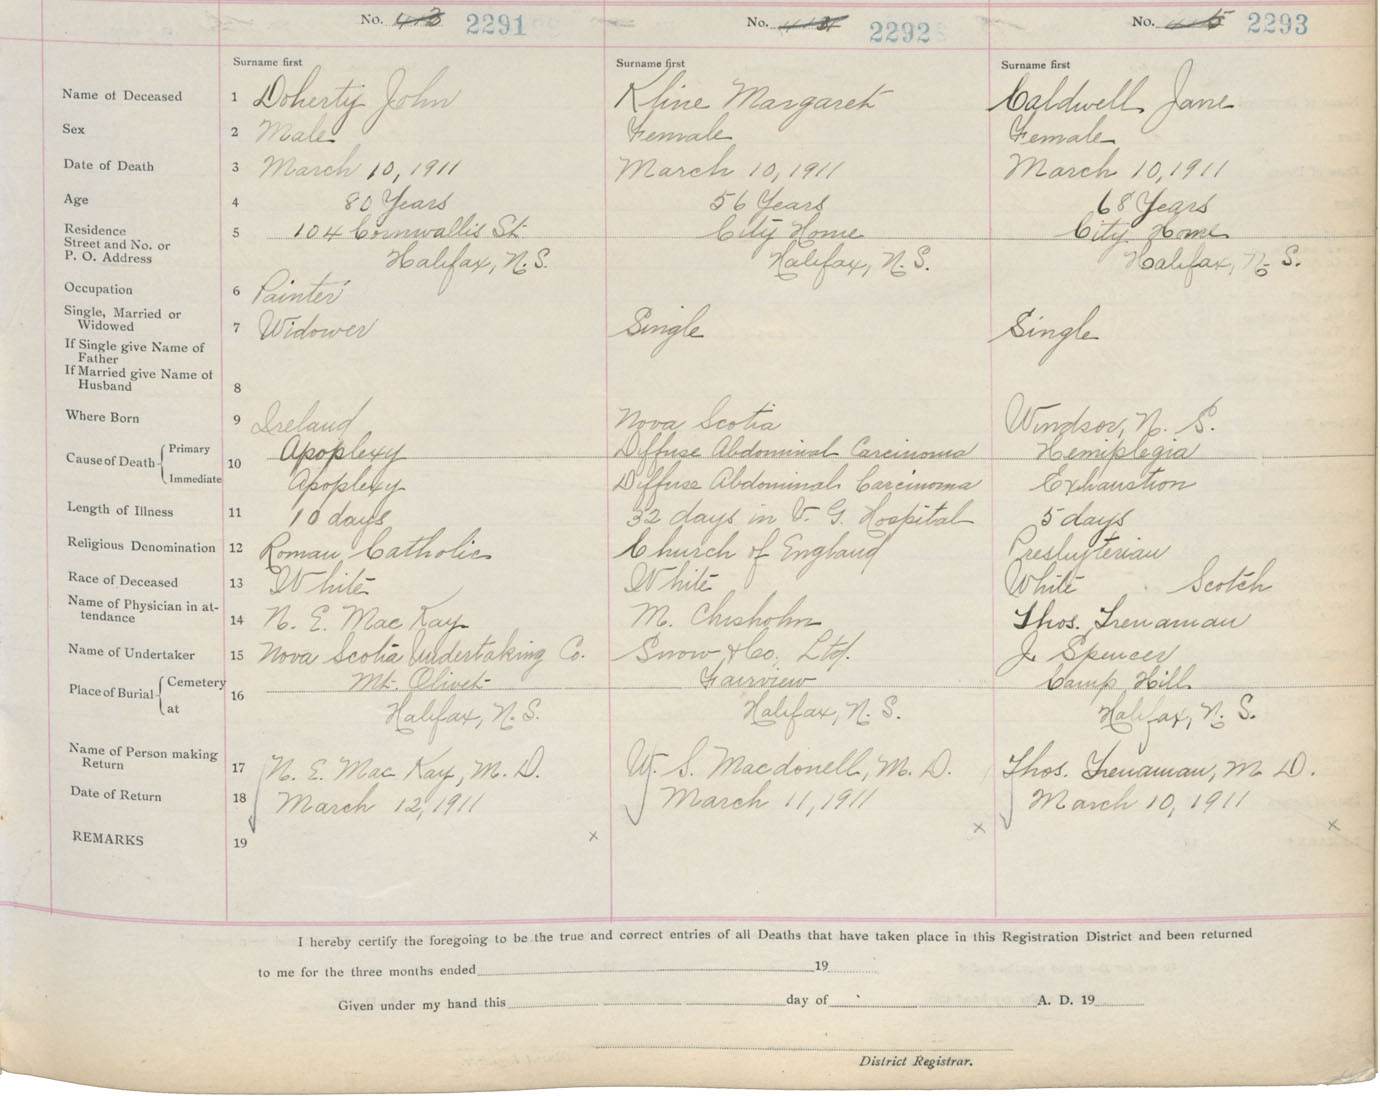 No. 413 2291 No. 414 2292 No. 415 2293
Surname first Surname first Surname first
Name of Deceased 1 Doherty John Kline Margaret Caldwell Jane
Sex 2 Male Female Female
Date of Death 3 March 10, 1911 March 10, 1911 March 10, 1911
Age 4 80 Years 56 Years 68 Years
Residence 5 104 Cornwallis St. City Home City Home
Street and No. or
P. O. Address Halifax, N. S. Halifax, N. S. Halifax, N. S.
Occupation 6 Painter
Single, Married or
Widowed 7 Widower Single Single
If Single give Name of
Father
If Married give Name of
Husband 8
Where Born 9 Ireland Nova Scotia Windsor, N. S.
Cause of Death Primary 10 Apoplexy Diffuse Abdominal Carcinoma Hemiplegia
Immediate Apoplexy Diffuse Abdominal Carcinoma Exhaustion
Length of Illness 11 10 days 32 days in V. G. Hospital 5 days
Religious Denomination 12 Roman Catholic Church of England Presbyterian
Race of Deceased 13 White White White Scotch
Name of Physician in at-
tendance 14 N. E. Mac Kay M. Chisholm Thos. Trenaman
Name of Undertaker 15 Nova Scotia Undertaking Co. Snow & Co., Ltd. J. Spencer
Place of Burial Cemetery 16 Mt. Olivet Fairview Camp Hill
at Halifax, N. S. Halifax, N. S. Halifax, N. S.
Name of Person making
Return 17 N. E. Mac Kay, M. D. W. S. Macdonell, M. D. Thos. Trenaman, M. D.
Date of Return 18 March 12, 1911 March 11, 1911 March 10, 1911
REMARKS 19 x x x
I hereby certify the foregoing to be the true and correct entries of all Deaths that have taken place in this Registration District and been returned
to me for the three months ended 19
Given under my hand this day of A. D. 19
District Registrar.